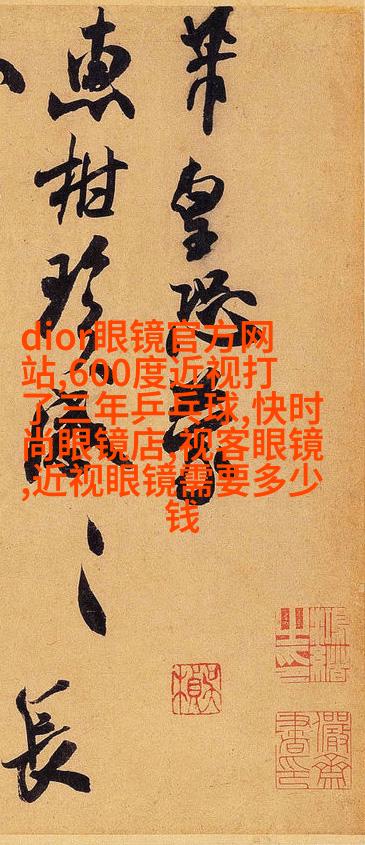 芾皇恐蒙
惠柑珍感〻
長
dior眼镜官方网
站,600度近视打
了三年乒乓球,快时
尚眼镜店,视客眼镜
,近视眼镜需要多少
钱